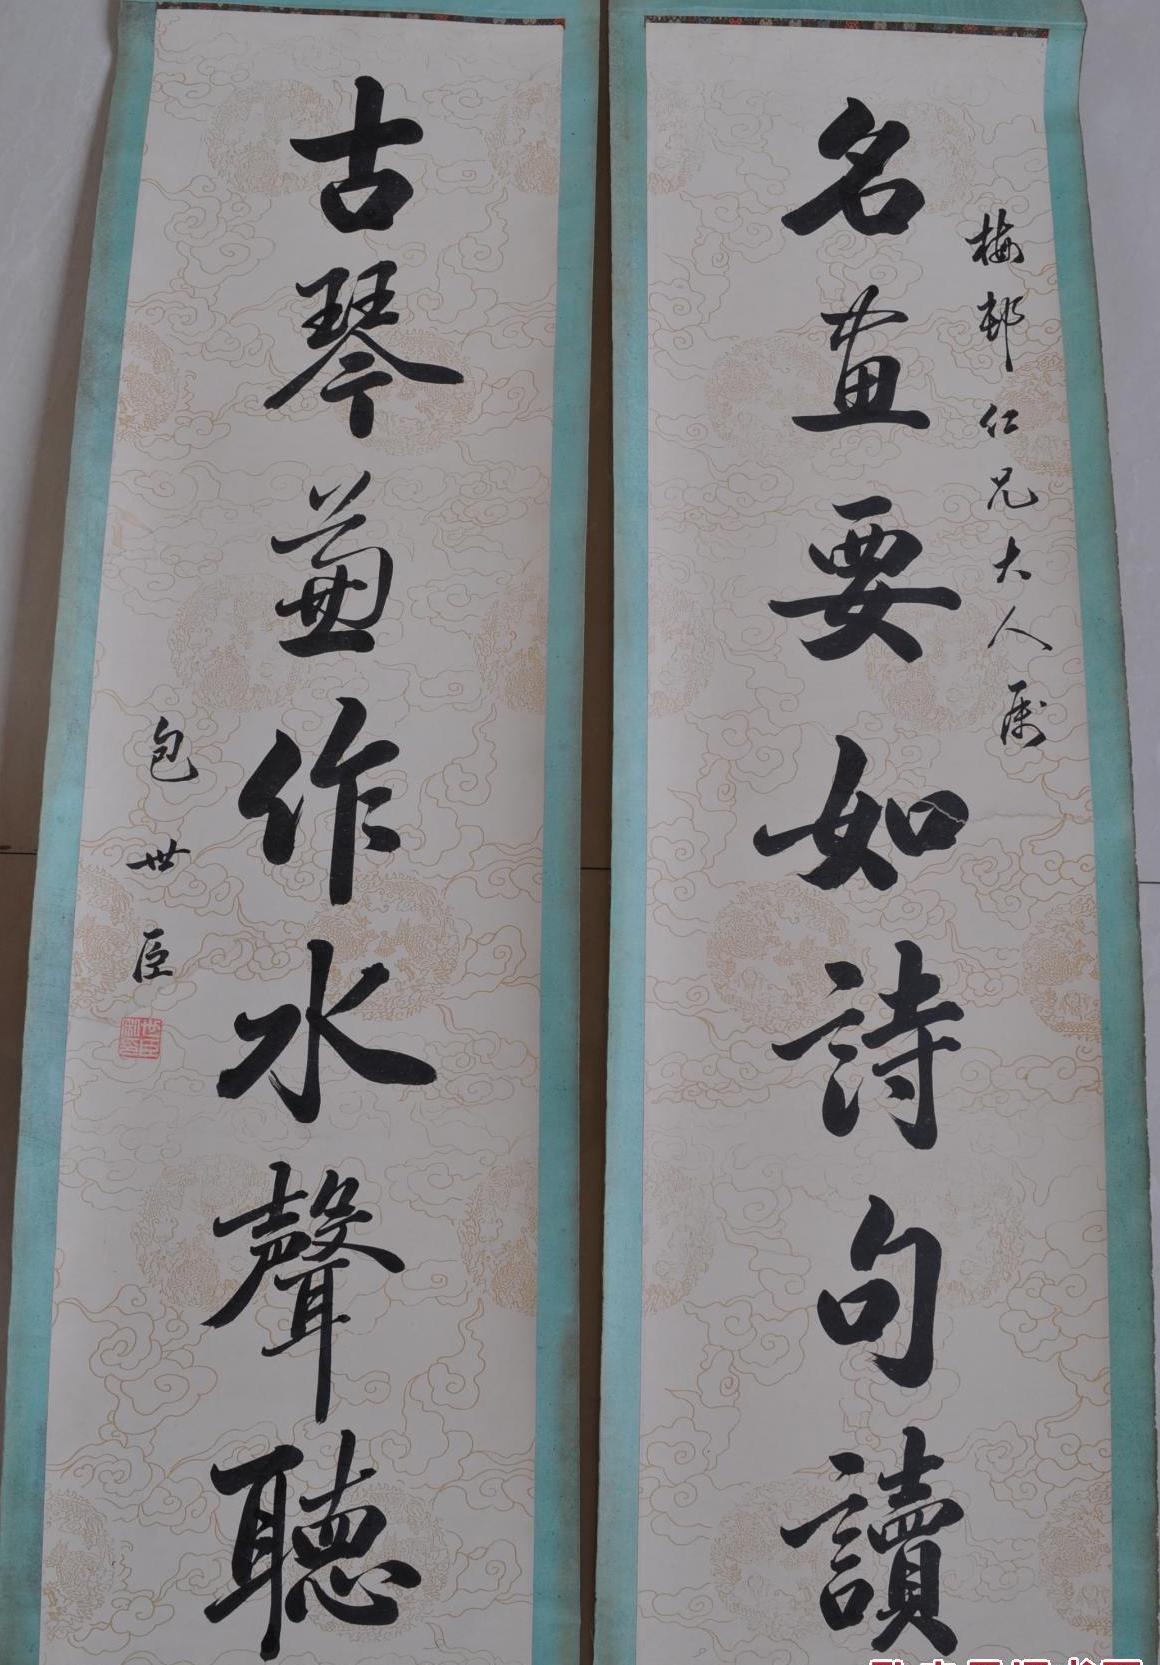 梅邨仁兄大人属
名畫要如詩句讀
古琴兼作水聲聽
包世臣